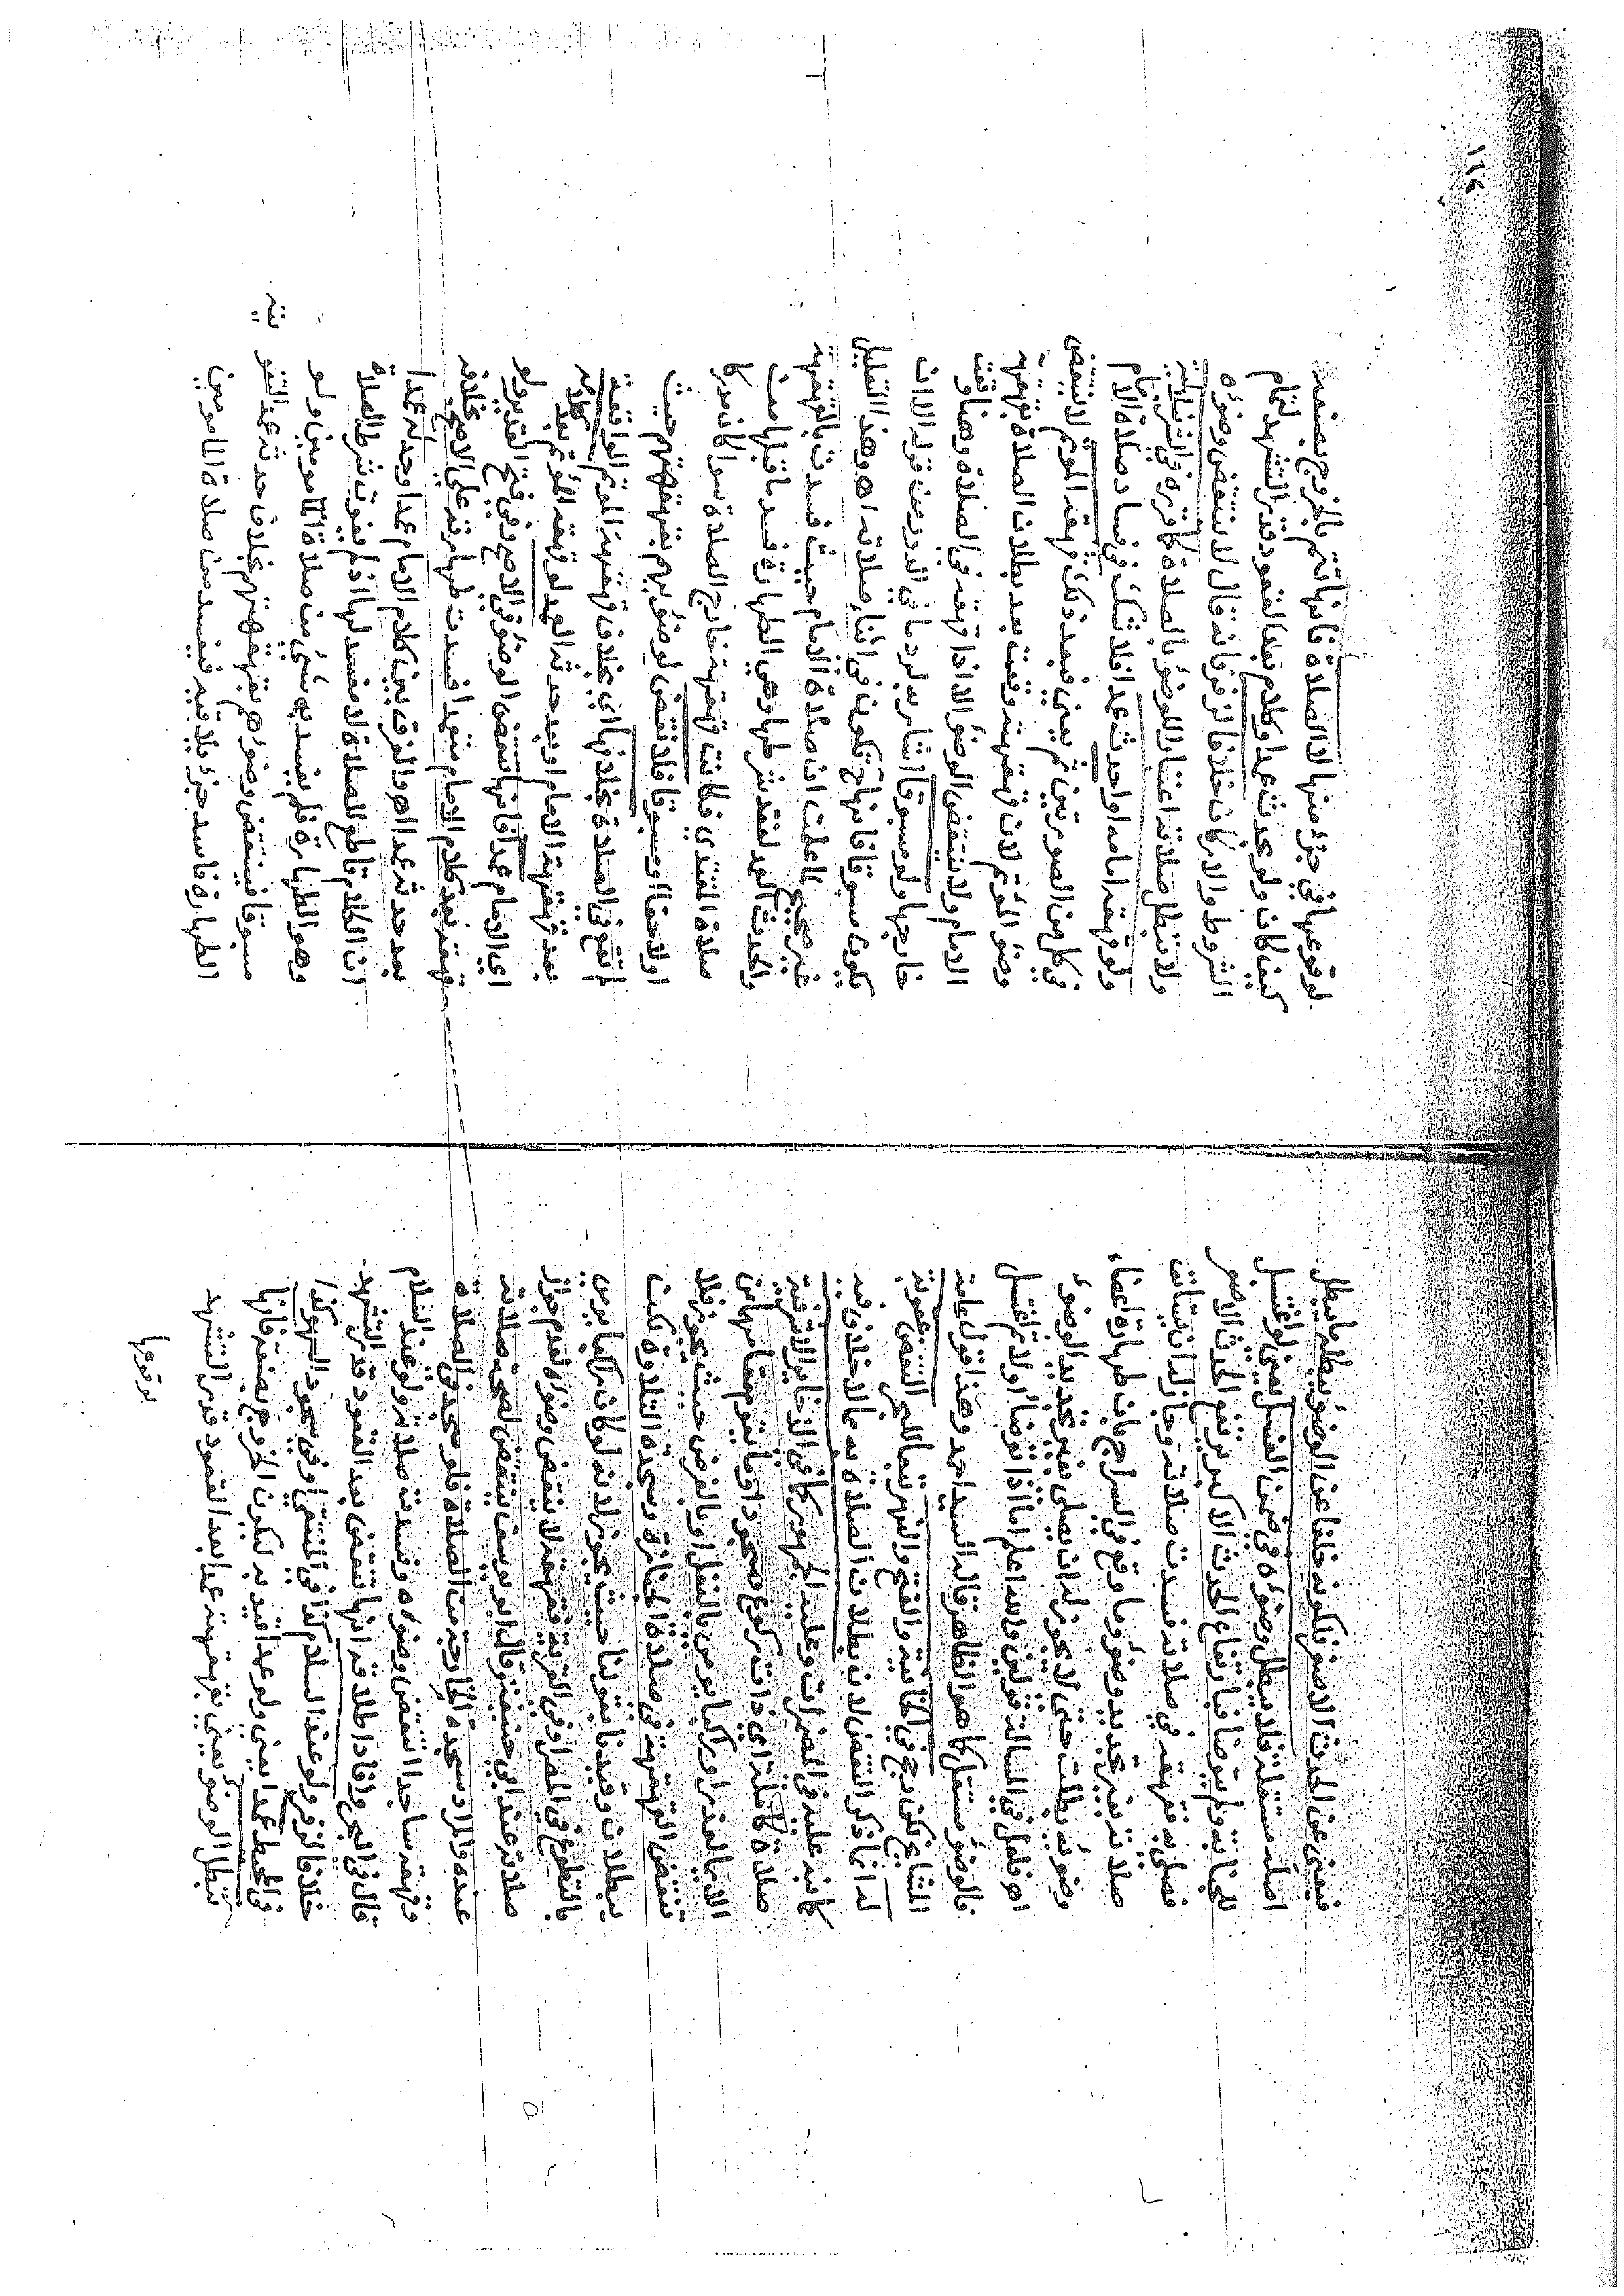 فيغني عن الحدث الاصغر فكونه خلفا عن الوضوء يبطله ما يبطل
اصله مستقلة فلا يبطل وضوءه في ضمن الغسل يعني لو اغتسل
للجنابة ولم يتوضا فبارتفاع الحدث الاكبر يرتفع الحدث الاصغر
فصلى به فقهقه في صلاته فسدت صلاته وجاز له ان
صلاته بغير تجديد وضوء وما وقع في السراج بان طهارة اعضاء
وضوئه بطلت حتى لا يجوز له ان يصلي بغير تجديد الوضوء
اه فلعل في المسالة قولين والله اعلم اما اذا توضأ اولا ثم اغتسل
فالوضوء مستقل كما هو الظاهر قاله السيد احمد وهذا قول عامة
المشايخ لكن رجح في الخانية والفتح والنهر تبعا للبحر النقض عقوبة
له انما ذكر النقض لان بطلان الصلاة به مما لا خلاف فيه
كما نبه عليه في المضمرات وعليه الجمهور كما في الذخاير الاشرفية
صلاة كاملة اي ذات ركوع وسجود او ما يقوم مقامهما من
الايماء لعذر او راكبا يومي بالنفل او بالفرض حيث يجوز فلا
تنتقض القهقهة في صلاة الجنازة وسجدة التلاوة لكن
يبطلان وقيدنا بقولنا حيث يجوز لانه لو كان راكبا يومي
بالتطوع في المصر او في القرية فقهقه لا ينتقض وضوءه لعدم جواز
صلاته عند ابي حنيفة وقال ابو يوسف ينتقض لصحة صلاته
عنده والمراد سجدة الخارجة من الصلاة فلو سجد في الصلاة
وقهقه ساجدا انتقض وضوءه وفسدت صلاته ولو عند السلام
قال في البحر وافاد اطلاقه انها تنقض بعد القعود قدر التشهد
خلافا لزفر ولو عند السلام كذا في المنتقى او في سجود السهو كذا
في المحيط عمدا يعني ولو عمدا قيد به ليكون الخروج بصنعه فانها
تبطل الوضوء يعني بقهقهته عمدا بعد القعود قدر التشهد
لوقوعها
لوقوعها في جزء منها لا الصلاة فانها تتم بالخروج بصنعه
كيف كان ولو بحدث عمدا وكلام بعد القعود قدر التشهد لتمام
الشروط والاركان خلافا لزفر فانه قال لا تنتقض وضوءه
ولا تبطل صلاته اعتبارا للوضوء بالصلاة كما قرره في الشرنبلالية
ولو قهقه امامه او احدث عمدا فلا شك في فساد صلاة الامام
في كل من الصورتين ثم يعني فبعد ذلك قهقه المؤتم لا تنتقض
وضوء المؤتم لان قهقهته وقعت بعد بطلان الصلاة بقهقهة
الامام ولا ينتقض الوضوء الا اذا قهقه في الصلاة وهنا وقعت
خارجها ولو مسبوقا اشار به لرد ما في الدرر من قوله الا ان
يكون مسبوقا فانها ح تكون في اثناء صلاته اه وهذا التعليل
غير صحيح لما علمت ان صلاة الامام حيث فسدت بالقهقهة
والحدث العمد لفقد شرطها وهي الطهارة فسد ما قبلها من
صلاة المقتدي فكانت قهقهته خارج الصلاة سواء كان مدركا
او لاحقا او مسبوقا فلا تنقض لوضوئهم بقهقهتهم حيث
لم تقع في الصلاة بخلافها اي بخلاف قهقهة المؤتم الواقعة
بعد قهقهة الامام او بعد حدثه العمد لو قهقه المؤتم بعد كلامه
اي الامام عمدا فانها تنقض الوضوء في الاصح وفي فتح القدير ولو
قهقه بعد كلام الامام متعمدا فسدت طهارته على الاصح بخلافه
بعد حدثه عمدا اه والفرق بين كلام الامام عمدا وحدثه عمدا
ان الكلام قاطع للصلاة لا مفسد لها اذ لم يفوت شرط الصلاة
وهو الطهارة فلم يفسد به شيء من صلاة المامومين ولو
مسبوقا فينتقض وضوءهم بقهقهتهم بخلاف حدثه عمدا لتفويته
الطهارة فافسد جزء يلاقيه فيفسد من صلاة المامومين